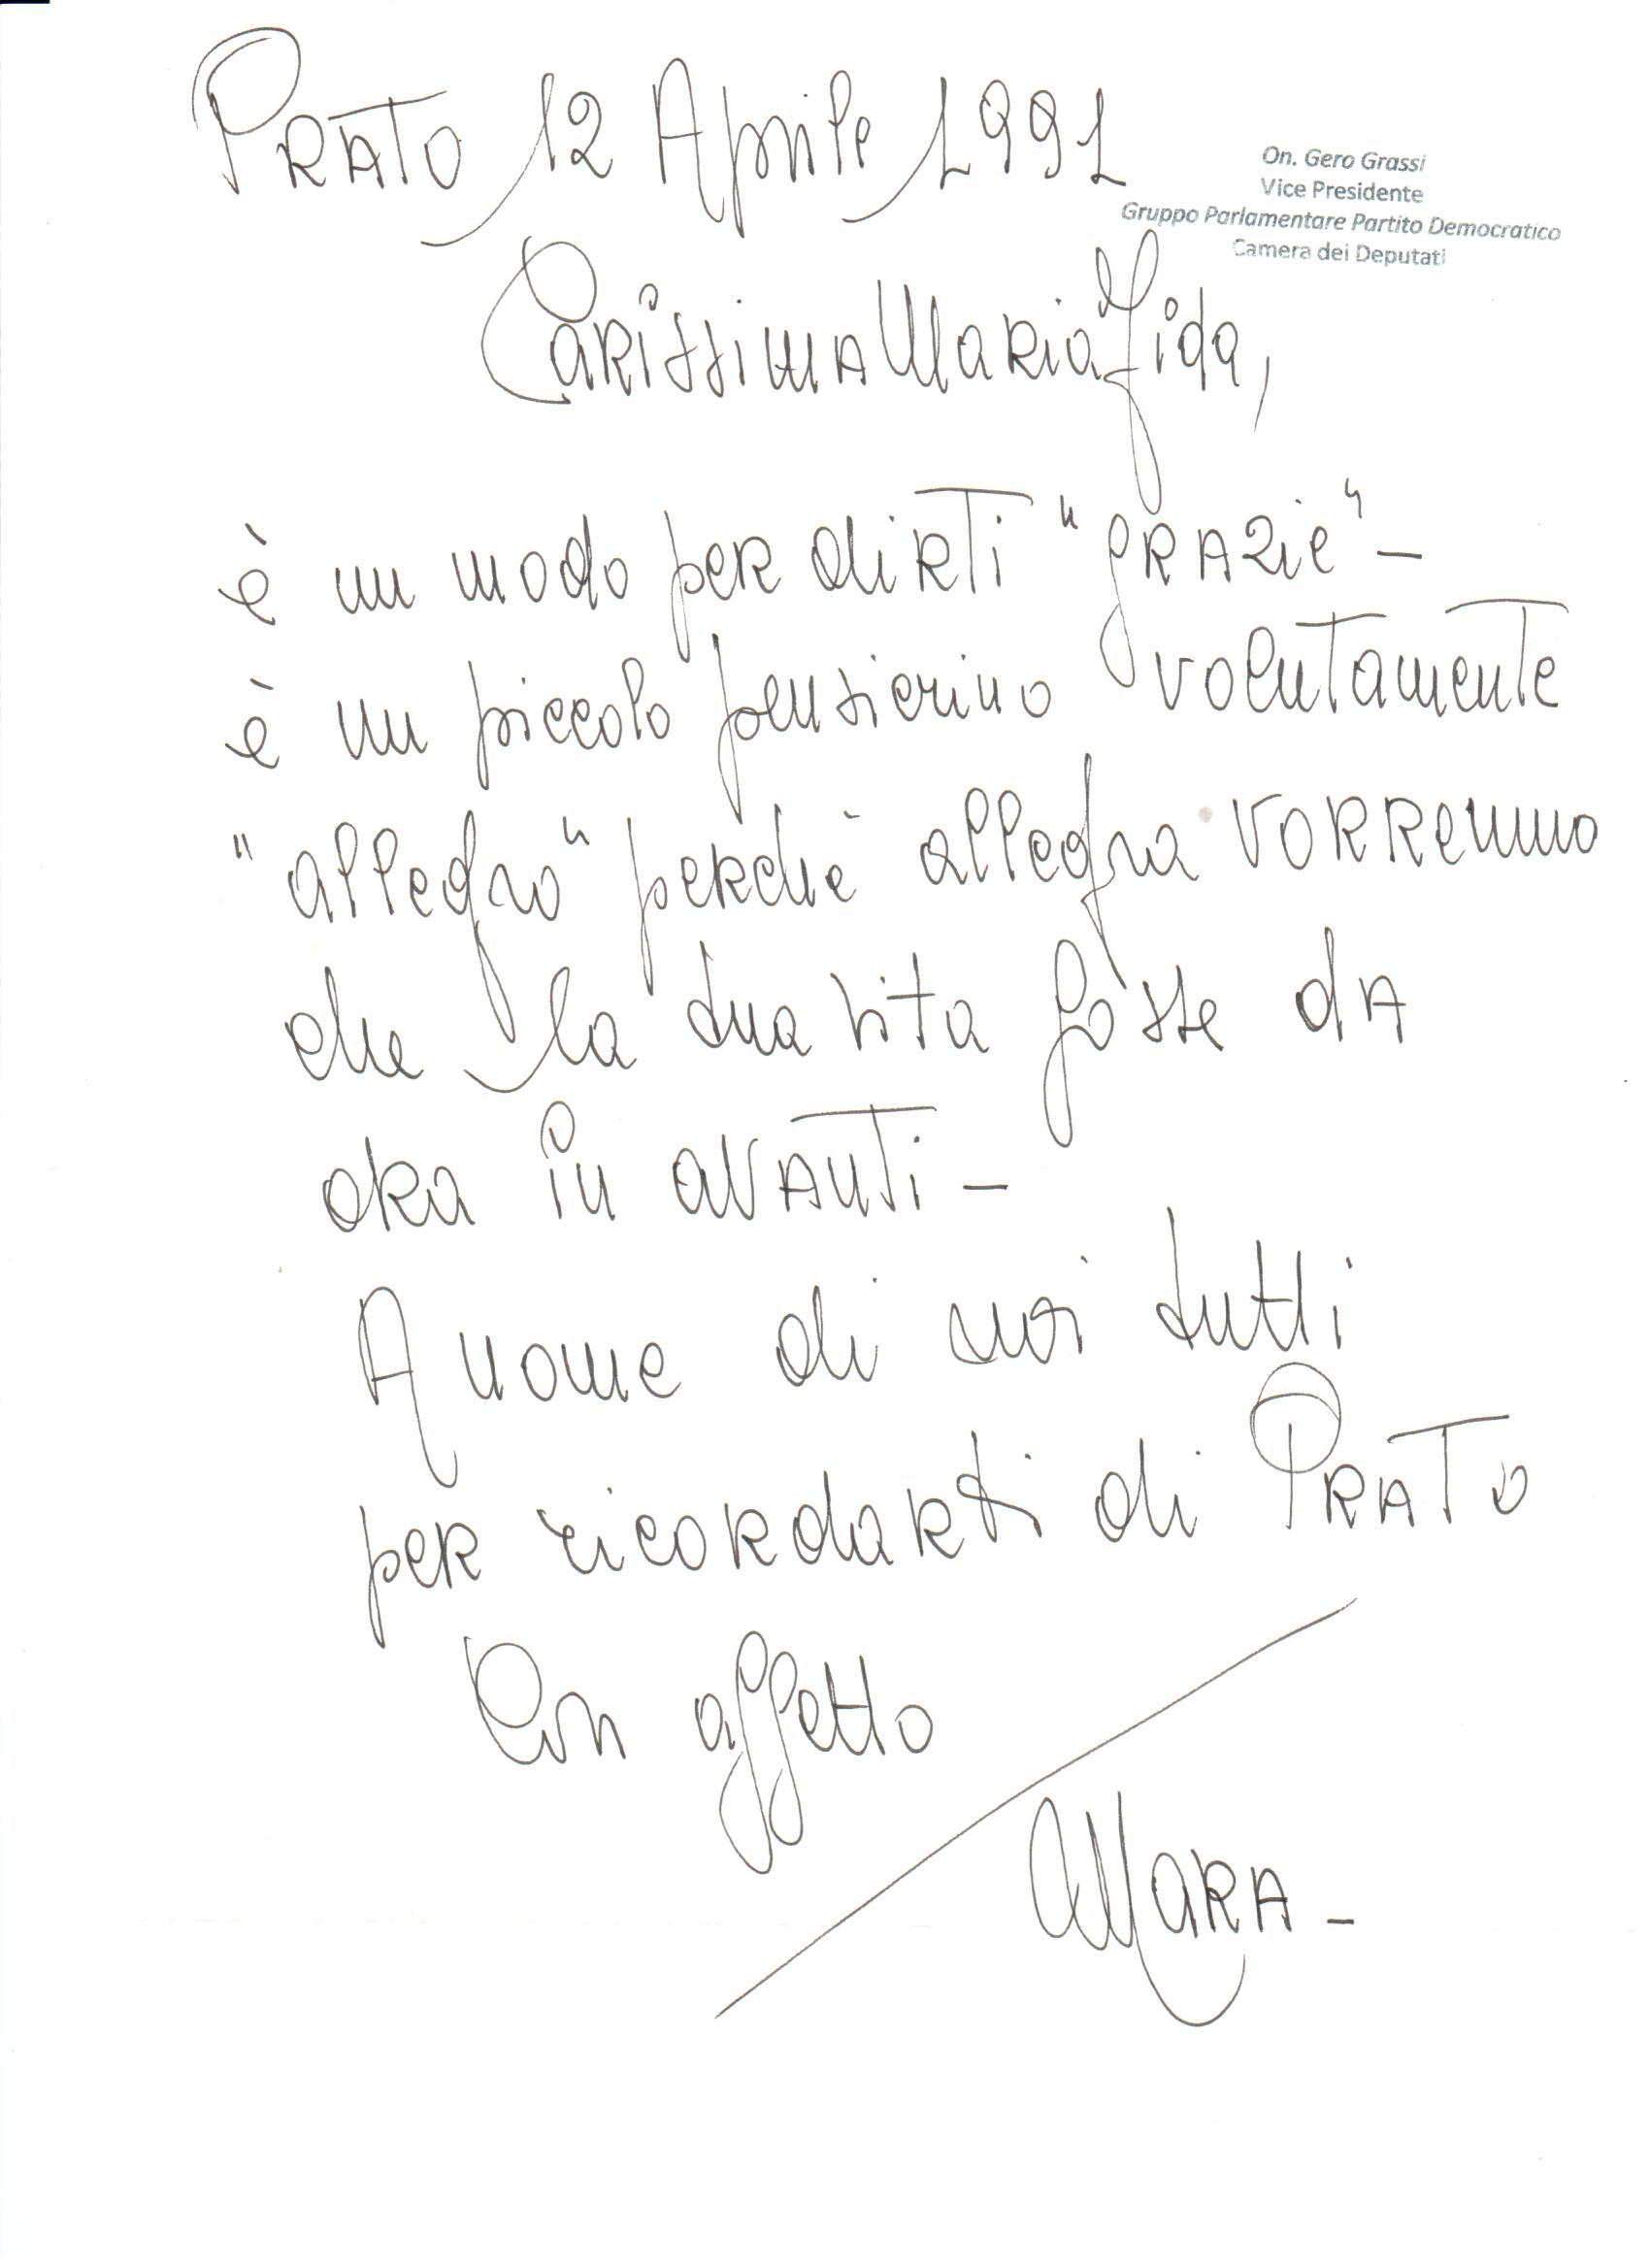 Prato 12 Aprile 1991
On. Gero Grassi
Vice Presidente
Gruppo Parlamentare Partito Democratico
Camera dei Deputati
Carissima Maria Fida,
è un modo per dirti "grazie" -
è un piccolo pensierino volutamente
"allegro" perchè allegra vorremmo
che la tua vita fosse da
ora in avanti -
A nome di noi tutti
per ricordarti di Prato
Con affetto
Mara -